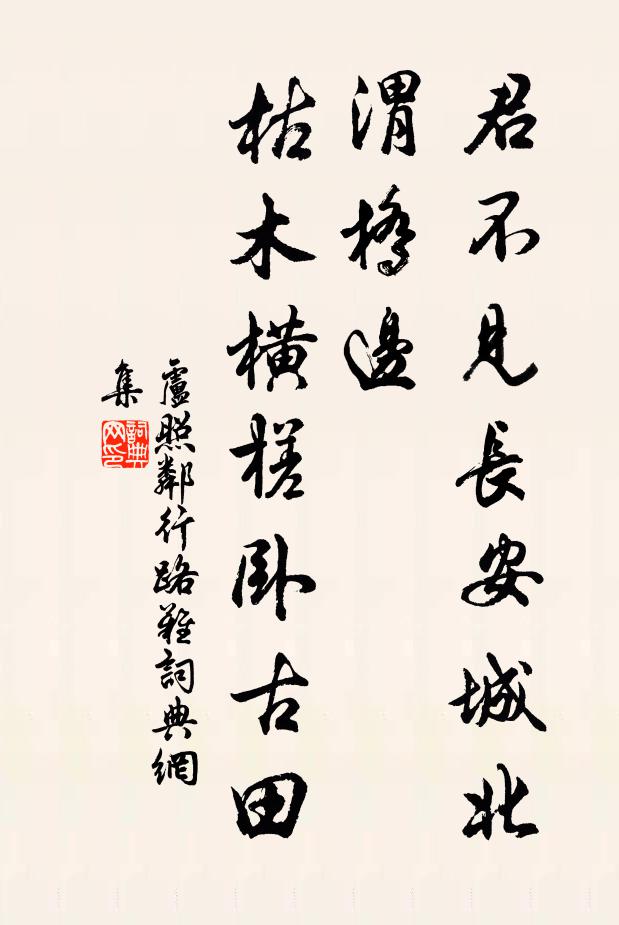 君不見長安城北
渭橋邊
枯木橫槎臥古田
盧照鄰行路難詞典網
集
詞典
网印